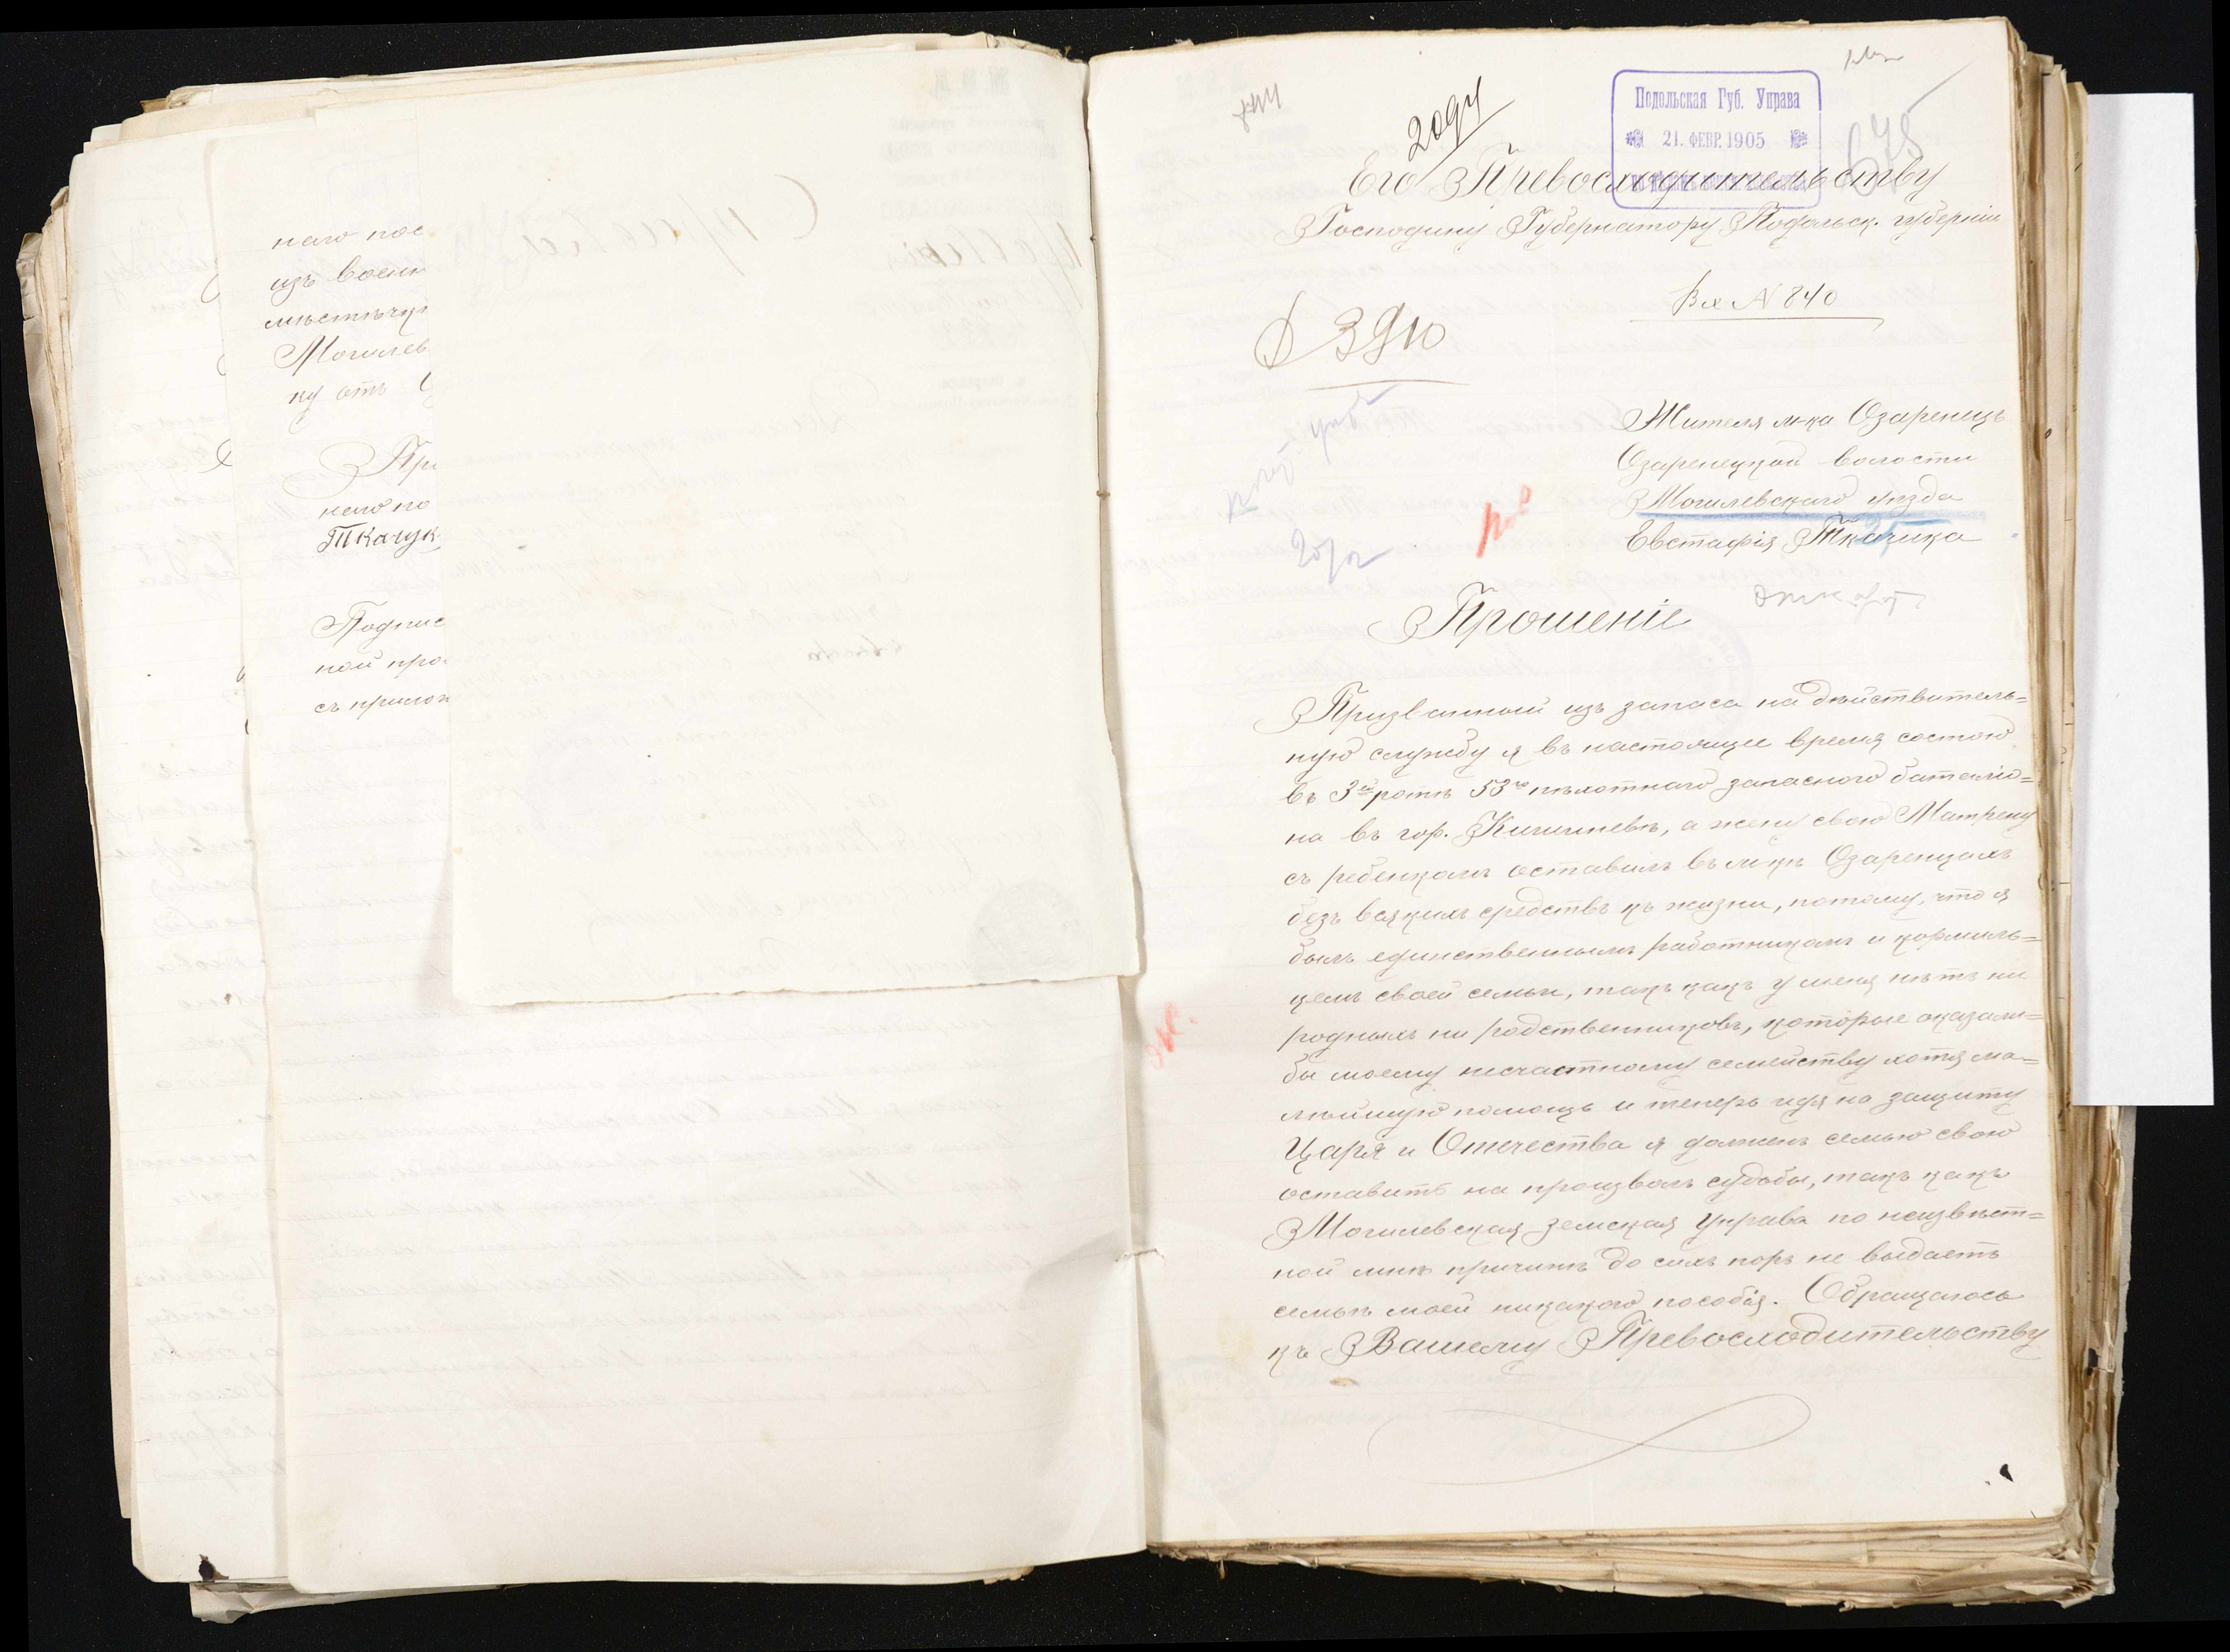 наго пос
изъ воен
мѣстечк
Могилев
ку отъ
При
наго по
Ткачук
Подпис
ной про
съ прилож
Подольская Губ. Управа
21. ФЕВР. 1905
2094
675
Его Превосходительству
Господину Губернатору Подольск. губерніи
Вх N 840
Жителя м-ка Озаренецъ
Озаренецкой волости
Могилевскаго уѣзда
Евстафія Ткачука
Прошеніе
Призванный изъ запаса на дѣйствитель=
ную службу я въ настоящее время состою
въ 3й ротѣ 53го пѣхотнаго запаснаго баталіо=
на въ гор. Кишиневѣ, а жену свою Матрену
съ ребенкомъ оставилъ въ м-кѣ Озаренцахъ
безъ всякихъ средствъ къ жизни, потому, что я
былъ единственнымъ работникомъ и кормиль=
цемъ своей семьи, такъ какъ у меня нѣтъ ни
родныхъ ни родственниковъ, которые оказали=
бы моему несчастному семейству хотя ма=
лѣйшую помощь и теперь идя на защиту
Царя и Отечества я долженъ семью свою
оставить на произволъ судьбы, такъ какъ
Могилевская земская Управа по неизвѣст=
ной мнѣ причинѣ до сихъ поръ не выдаетъ
семьѣ моей никакого пособія. Обращаюсь
къ Вашему Превосходительству